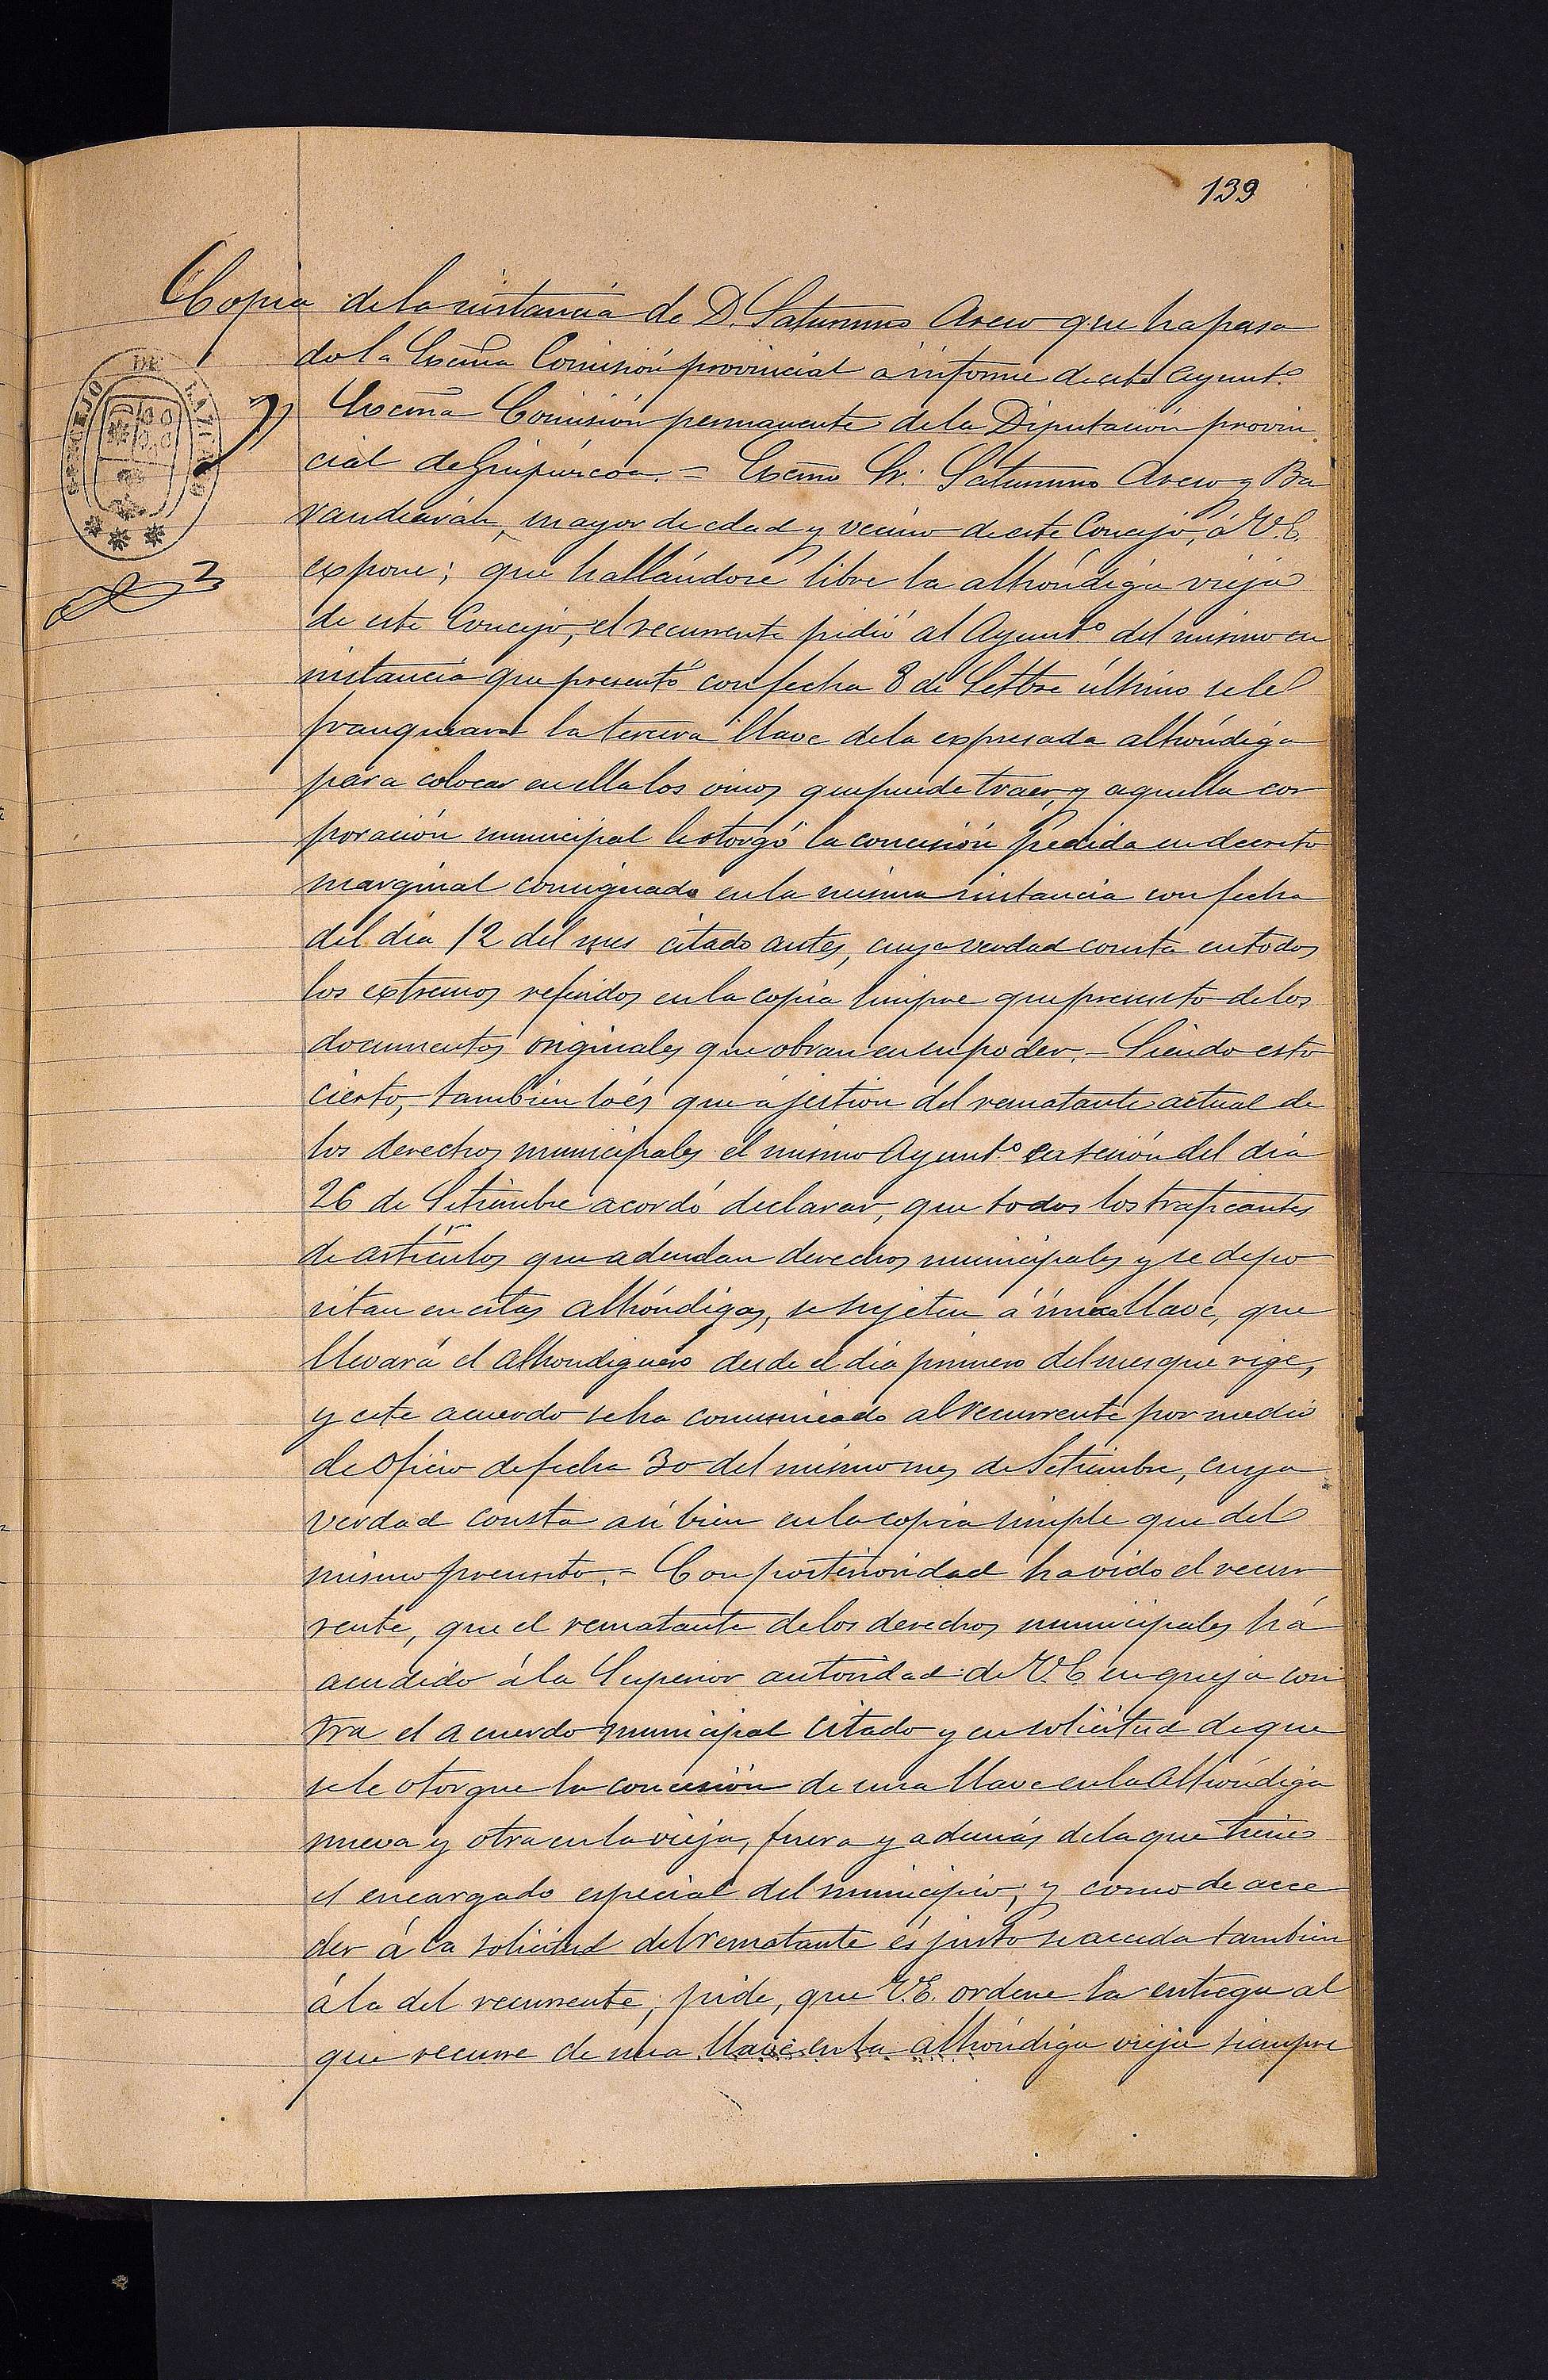 139
Copia de la instancia de D. Saturnino Areso que ha pasa
do la Excma Comisión provincial á informe de este Ayunt.º
CONCEJO DE LAZCANO
Excma Comisión permanente de la Diputación provin
cial de Guipúzcoa. = Excmo Sr: Saturnino Areso y Ba
randiarán, mayor de edad y vecino de este Concejo, á V.E.
expone; que hallándose libre la alhóndiga vieja
de este Concejo, el recurrente pidió al Ayunt.º del mismo en
instancia que presentó con fecha 8 de Setbre último se le
franqueara la tercera llave de la expresada alhóndiga
para colocar en ella los vinos que puede traer, y aquella cor
poración municipal le otorgó la concesión pedida en decreto
marginal consignado en la misma instancia con fecha
del dia 12 del mes citado antes, cuya verdad consta en todos
los extremos referidos en la copia simpre que presento de los
documentos originales que obran en su poder. - Siendo esto
cierto, tambien lo és que á jestion del rematante actual de
los derechos municipales el mismo Ayunt.º en sesión del dia
26 de Setiembre acordó declarar, que todos los traficantes
de artículos que adeudan derechos municipales y se depo
sitan en estas alhóndigas, se sujeten á única llave, que
llevará el alhondiguero desde el dia primero del mes que rige,
y este acuerdo se ha comunicado al recurrente por medio
de oficio de fecha 30 del mismo mes de Setiembre, cuya
verdad consta asi bien en la copia simple que del
mismo presento. = Con posterioridad ha oido el recur
rente, que el rematante de los derechos municipales há
acudido á la Superior autoridad de V.E. en queja con
tra el acuerdo municipal citado y en solicitud de que
se le otorgue la concesión de una llave en la Alhóndiga
nueva y otra en la vieja, fuera y además de la que tiene
el encargado especial del municipio; y como de acce
der á la solicitud del rematante és justo se acceda tambien
á la del recurrente; pide, que V.E. ordene la entrega al
que recurre de una llave en la alhóndiga vieja siempre